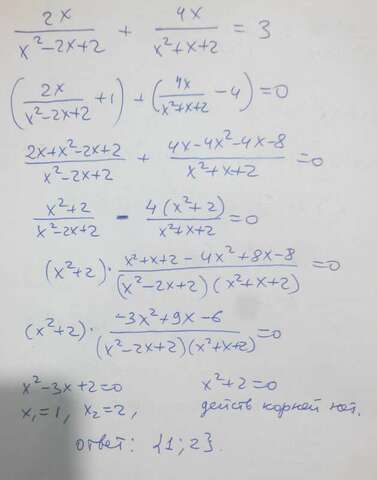 2x/(x²-2x+2) + 4x/(x²+x+2) = 3
(2x/(x²-2x+2) + 1) + (4x/(x²+x+2) - 4) = 0
(2x+x²-2x+2)/(x²-2x+2) + (4x-4x²-4x-8)/(x²+x+2) = 0
(x²+2)/(x²-2x+2) - 4(x²+2)/(x²+x+2) = 0
(x²+2) · (x²+x+2-4x²+8x-8)/((x²-2x+2)(x²+x+2)) = 0
(x²+2) · (-3x²+9x-6)/((x²-2x+2)(x²+x+2)) = 0
x²-3x+2=0 x²+2=0
x₁=1, x₂=2, действ корней нет.
ответ: {1; 2}.